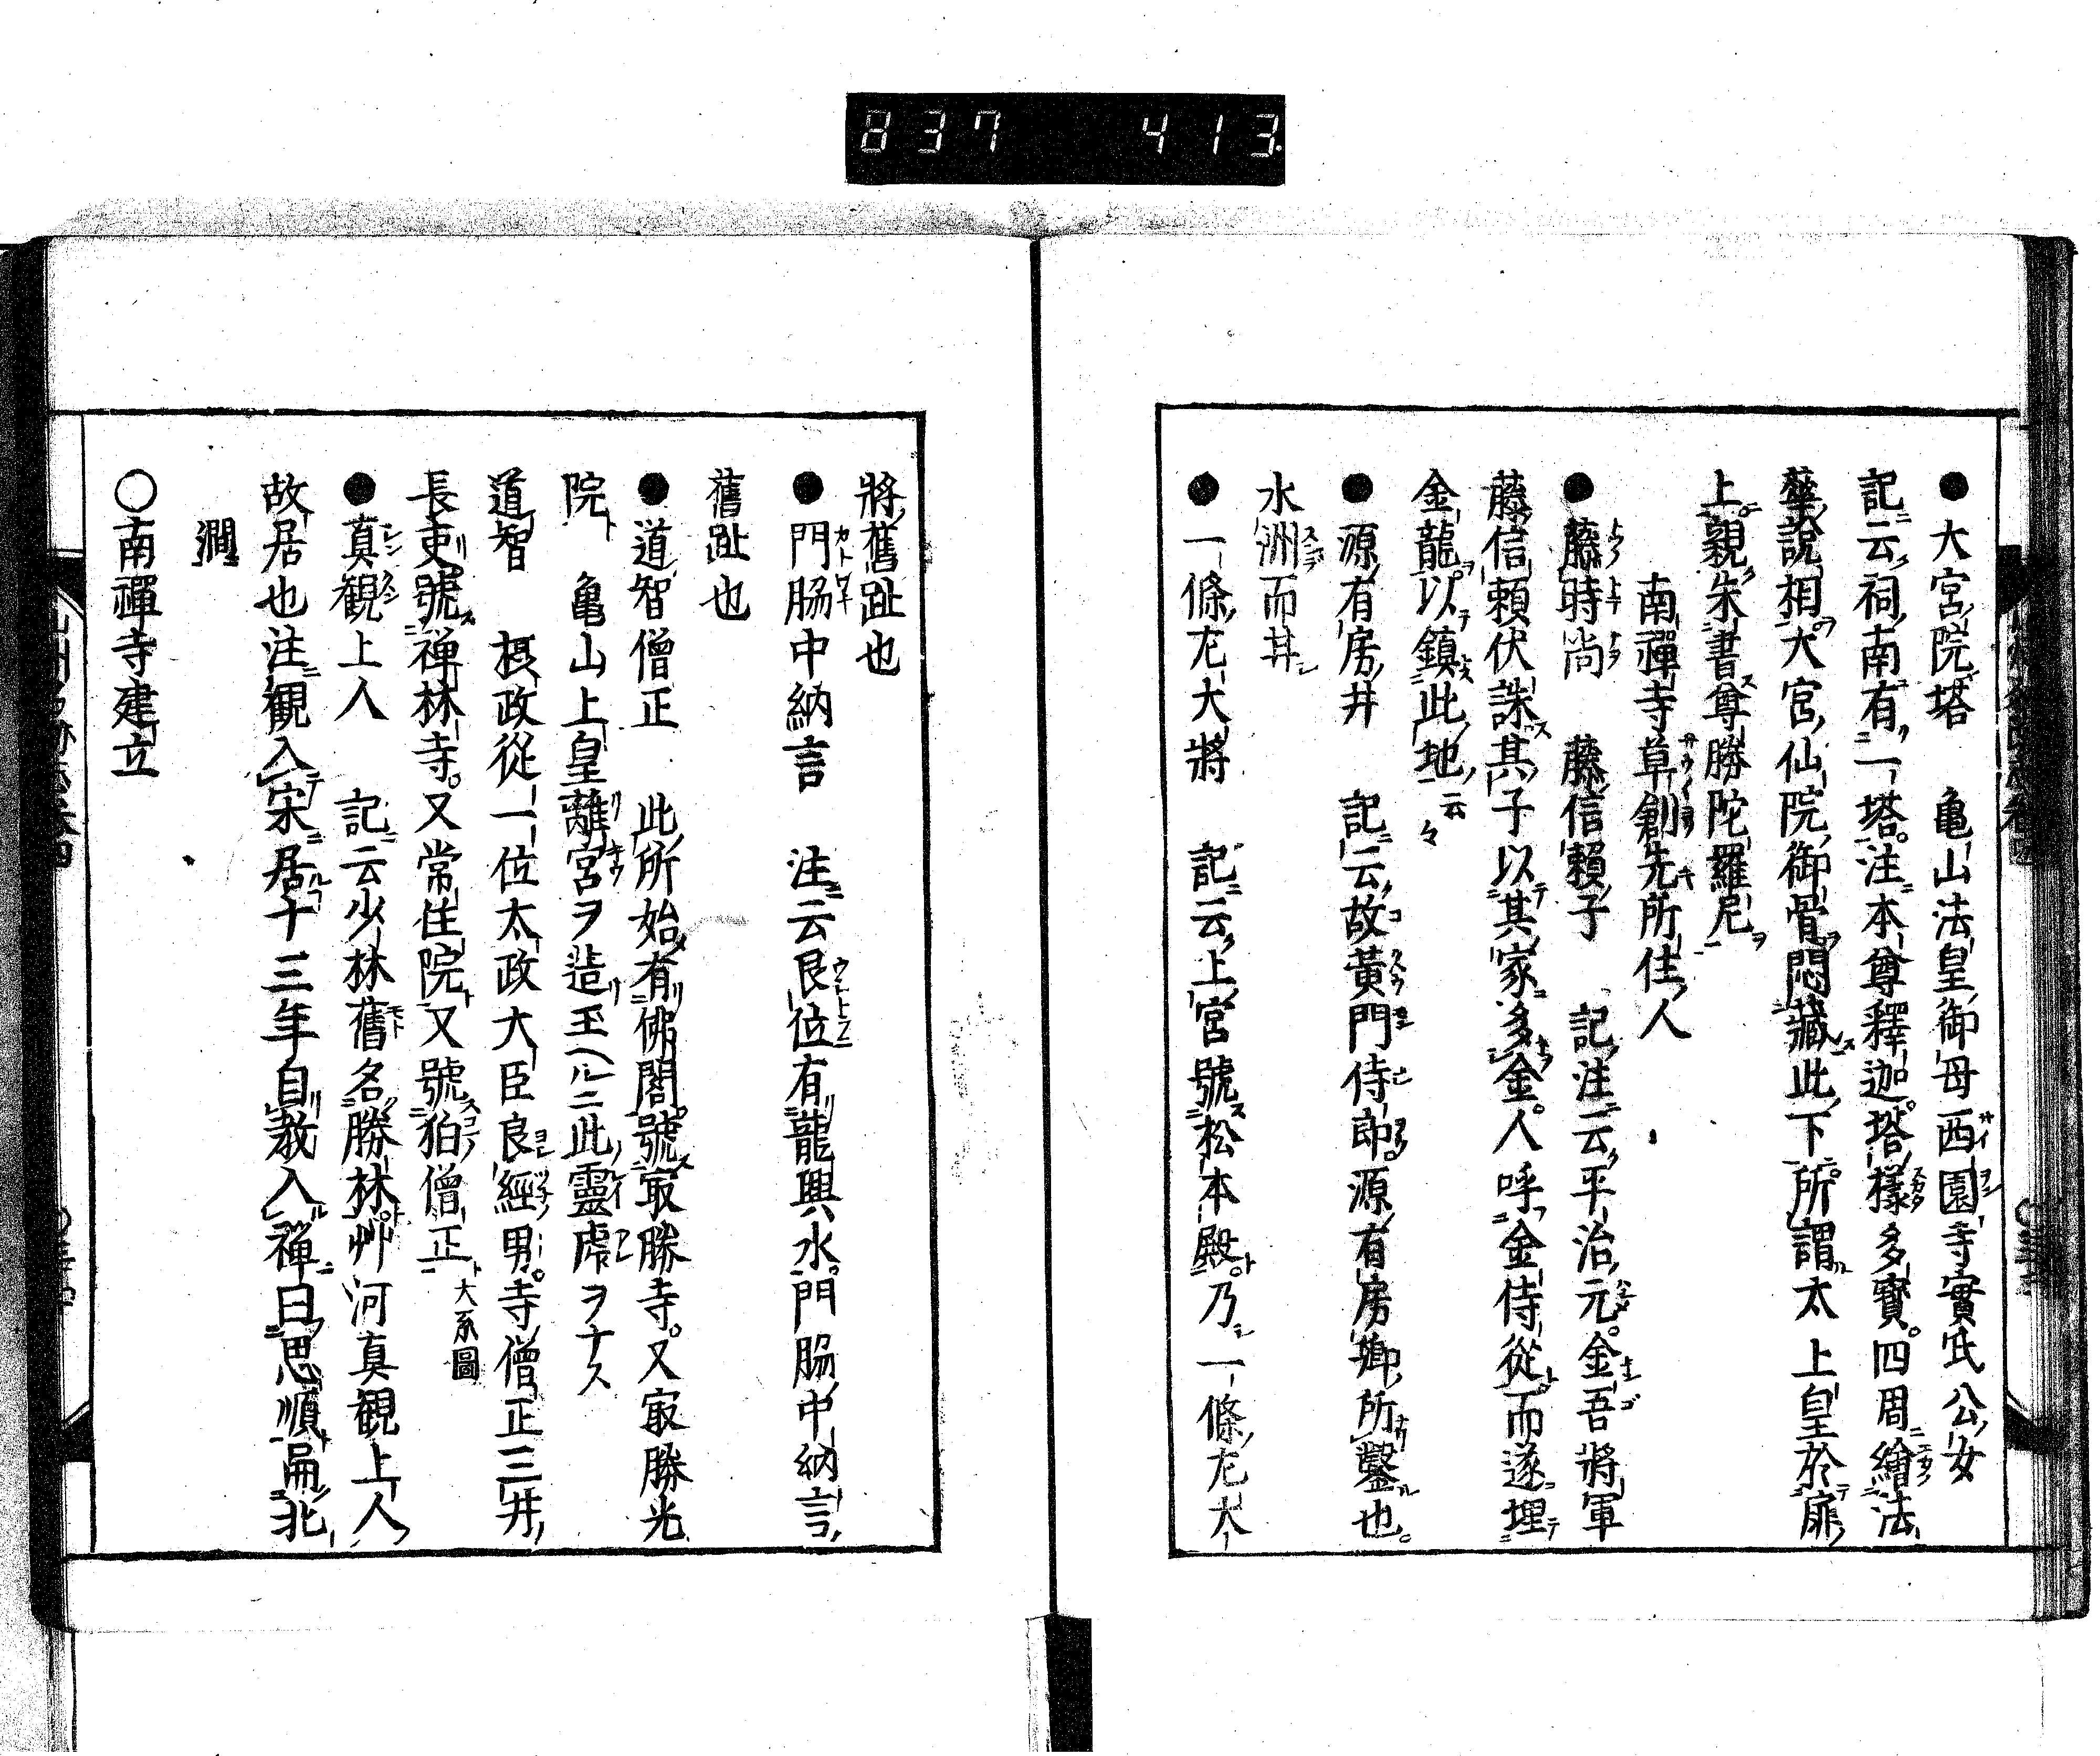 837 413
●大宮院塔 亀山法皇御母西園寺實氏公女
記云祠南有一塔注本尊釋迦塔樣多寶四周繪法
華說相大宮仙院御骨悶藏此下所謂太上皇於扉
上親朱書尊勝陀羅尼
南禪寺草創先所住人
●藤時尚 藤信賴子 記注云平治元金吾將軍
藤信賴伏誅其子以其家多金人呼金侍從而遂埋
金龍以鎮此地云々
●源有房井 記云故黃門侍郎源有房卿所鑿也
水洲而井
●一條左大將 記云上宮號松本殿乃一條左大
將舊趾也
●門脇中納言 注云艮位有龍興水門脇中納言
舊趾也
●道智僧正 此所始有佛閣號最勝寺又最勝光
院 亀山上皇離宮ヲ造玉ヘルニ此靈虎ヲナス
道智 摂政從一位太政大臣良經男寺僧正三井
長吏號禅林寺又常住院又號狛僧正大系圖
●真観上人 記云少林舊名勝林艸河真観上人
故居也注観入宋居十三年自教入禅曰思順扁北
澗
○南禪寺建立